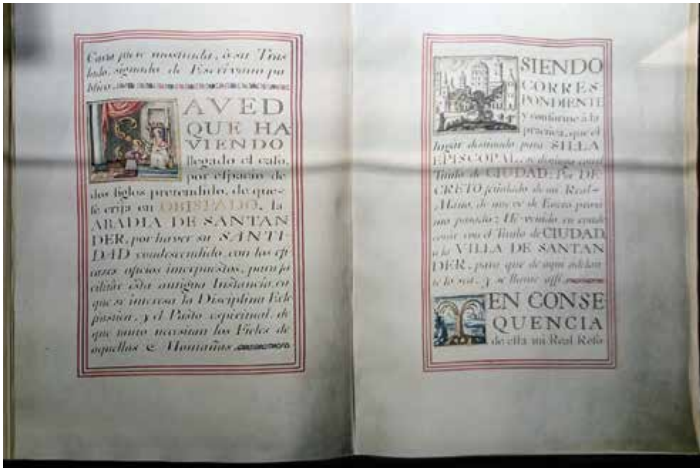 Carta fuere mostrada, ò su Tras
lado, signado de Escrivano pu
blico,
SAVED
QUE HA
VIENDO
llegado el caso,
por espacio de
dos siglos pretendido, de que
se erija en OBISPADO, la
ABADIA DE SANTAN
DER, por haver su SANTI
DAD condescendido, con los efi
caces oficios interpuestos, para fa
cilitàr èsta antigua Instancia, en
que se interesa la Disciplina Ecle
siastica, y el Pasto espiritual, de
que tanto necesitan los Fieles de
aquellas Montañas
SIENDO
CORRES
PONDIENTE
y conforme à la
practica, que el
lugar destinado para SILLA
EPISCOPAL, se distinga con el
Titulo de CIUDAD; Por DE
CRETO señalado de mi Real
Mano, de nueve de Enero proxi
mo pasado; He venido en conde
corar con el Titulo de CIUDAD,
a la VILLA DE SANTAN
DER, para que de aqui adelan
te lo sea, y se llame assi
EN CONSE
QUENCIA
de esta mi Real Reso